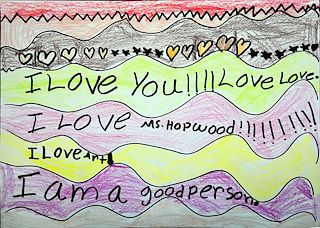 I Love You!!!!Love Love.
I Love Ms. Hopwood!!!!!!!!!
I Love Art!
I am a good person.